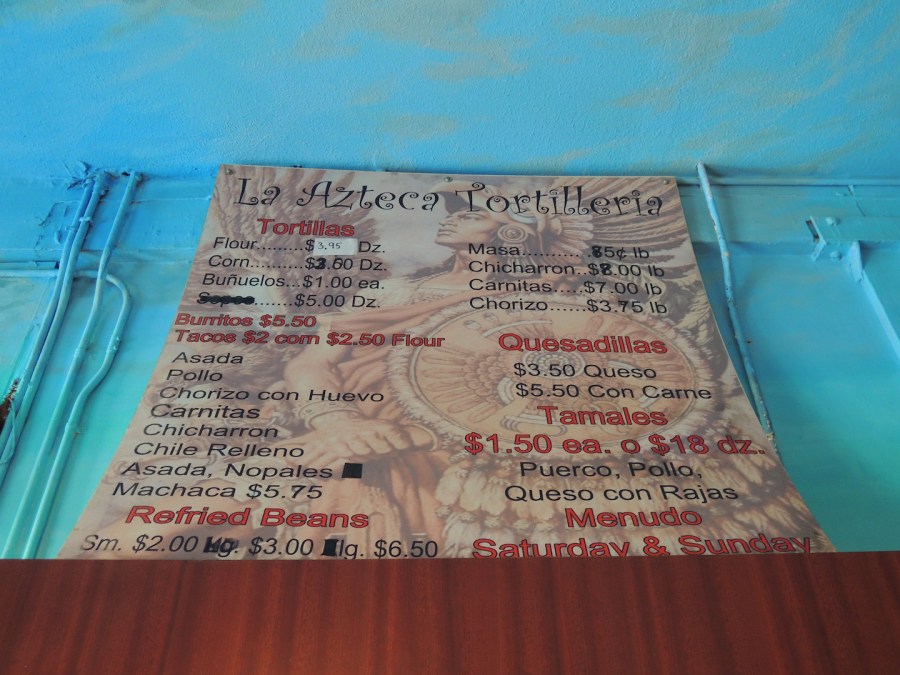 La Azteca Tortilleria
Tortillas
Flour.........$3.95 Dz.
Corn..........$ Dz.
Buñuelos...$1.00 ea.
.......$5.00 Dz.
Burritos $5.50
Tacos $2 corn $2.50 Flour
Asada
Pollo
Chorizo con Huevo
Carnitas
Chicharron
Chile Relleno
Asada, Nopales
Machaca $5.75
Refried Beans
Sm. $2.00 $3.00 lg. $6.50
Masa........... lb
Chicharron..$8.00 lb
Carnitas.....$7.00 lb
Chorizo......$3.75 lb
Quesadillas
$3.50 Queso
$5.50 Con Carne
Tamales
$1.50 ea. o $18 dz.
Puerco, Pollo,
Queso con Rajas
Menudo
Saturday & Sunday